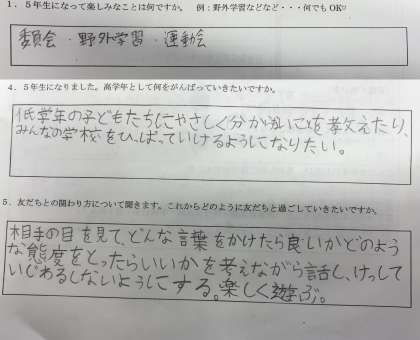 1．５年生になって楽しみなことは何ですか。 例：野外学習などなど・・・何でもOK♡
委員会・野外学習・運動会
4．５年生になりました。高学年として何をがんばっていきたいですか。
低学年の子どもたちにやさしく分からないことを教えたり、
みんなの学校をひっぱっていけるようになりたい。
5．友だちとの関わり方について聞きます。これからどのように友だちと過ごしていきたいですか。
相手の目を見て、どんな言葉をかけたら良いかどのよう
な態度をとったらいいかを考えながら話し、けっして
いじわるしないようにする。楽しく遊ぶ。